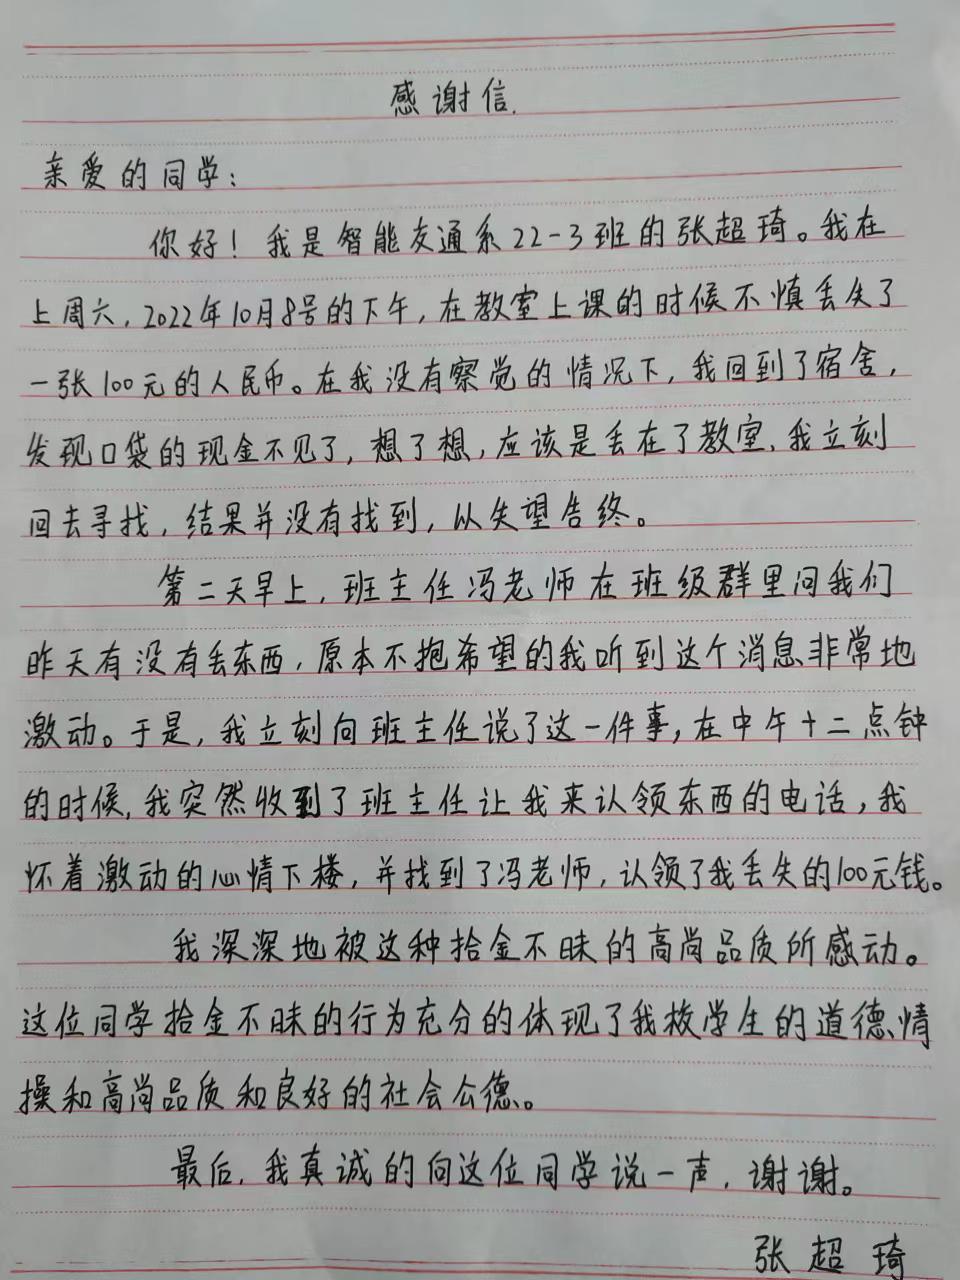 感谢信.
亲爱的同学：
你好！我是智能交通系22-3班的张超琦。我在
上周六，2022年10月8号的下午，在教室上课的时候不慎丢失了
一张100元的人民币。在我没有察觉的情况下，我回到了宿舍，
发现口袋的现金不见了，想了想，应该是丢在了教室，我立刻
回去寻找，结果并没有找到，以失望告终。
第二天早上，班主任冯老师在班级群里问我们
昨天有没有丢东西，原本不抱希望的我听到这个消息非常地
激动。于是，我立刻向班主任说了这一件事，在中午十二点钟
的时候，我突然收到了班主任让我来认领东西的电话，我
怀着激动的心情下楼，并找到了冯老师，认领了我丢失的100元钱。
我深深地被这种拾金不昧的高尚品质所感动。
这位同学拾金不昧的行为充分的体现了我校学生的道德情
操和高尚品质和良好的社会公德。
最后，我真诚的向这位同学说一声，谢谢。
张超琦